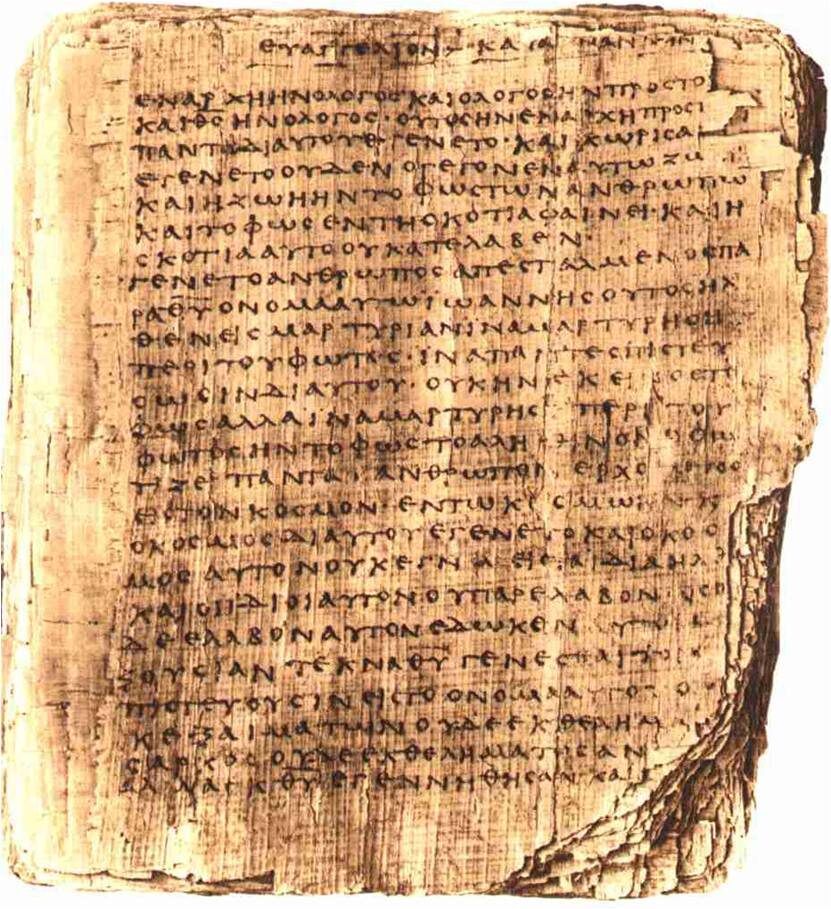 ΕΥΑΓΓΕΛΙΟΝ ΚΑΤΑ ΙΩΑΝΝΗΝ
ΕΝΑΡΧΗΗΝΟΛΟΓΟΣΚΑΙΟΛΟΓΟΣΗΝΠΡΟΣΤΟ
ΚΑΙΘΣΗΝΟΛΟΓΟΣ·ΟΥΤΟΣΗΝΕΝΑΡΧΗΠΡΟΣΤ
ΠΑΝΤΑΔΙΑΥΤΟΥΕΓΕΝΕΤΟ·ΚΑΙΧΩΡΙΣΑ
ΕΓΕΝΕΤΟΟΥΔΕΝΟΓΕΓΟΝΕΝΑΥΤΩΖΩ
ΚΑΙΗΖΩΗΗΝΤΟΦΩΣΤΩΝΑΝΘΡΩΠΩ
ΚΑΙΤΟΦΩΣΕΝΤΗΣΚΟΤΙΑΦΑΙΝΕΙ·ΚΑΙΗ
ΣΚΟΤΙΑΑΥΤΟΟΥΚΑΤΕΛΑΒΕΝ·
ΓΕΝΕΤΟΑΝΘΡΩΠΟΣΑΠΕΣΤΑΛΜΕΝΟΣΠΑ
ΡΑΘΥΟΝΟΜΑΑΥΤΩΙΩΑΝΝΗΣΟΥΤΟΣΗΛ
ΘΕΝΕΙΣΜΑΡΤΥΡΙΑΝΙΝΑΜΑΡΤΥΡΗΣΗ
ΠΕΡΙΤΟΥΦΩΤΟΣ·ΙΝΑΠΑΝΤΕΣΠΙΣΤΕΥ
ΣΩΣΙΝΔΙΑΥΤΟΥ·ΟΥΚΗΝΕΚΕΙΝΟΣΤΟ
ΦΩΣΑΛΛΑΙΝΑΜΑΡΤΥΡΗΣΗΠΕΡΙΤΟΥ
ΦΩΤΟΣΗΝΤΟΦΩΣΤΟΑΛΗΘΙΝΟΝΟΦΩ
ΤΙΖΕΙΠΑΝΤΑΑΝΘΡΩΠΟΝΕΡΧΟΜΕΝΟ
ΕΙΣΤΟΝΚΟΣΜΟΝ·ΕΝΤΩΚΟΣΜΩΗΝΚ
ΟΚΟΣΜΟΣΔΙΑΥΤΟΥΕΓΕΝΕΤΟΚΑΙΟΚΟΣ
ΜΟΣΑΥΤΟΝΟΥΚΕΓΝΩΕΙΣΤΑΙΔΙΑΗΛΘ
ΚΑΙΟΙΙΔΙΟΙΑΥΤΟΝΟΥΠΑΡΕΛΑΒΟΝ·ΟΣΟΙ
ΔΕΕΛΑΒΟΝΑΥΤΟΝΕΔΩΚΕΝΑΥΤΟΙ
ΕΞΟΥΣΙΑΝΤΕΚΝΑΘΥΓΕΝΕΣΘΑΙΤΟΙ
ΠΙΣΤΕΥΟΥΣΙΝΕΙΣΤΟΟΝΟΜΑΑΥΤΟΥΟ
ΚΕΞΑΙΜΑΤΩΝΟΥΔΕΕΚΘΕΛΗΜΑ
ΣΑΡΚΟΣΟΥΔΕΕΚΘΕΛΗΜΑΤΟΣΑΝ
ΑΛΛΑΕΚΘΥΕΓΕΝΝΗΘΗΣΑΝΚΑΙ